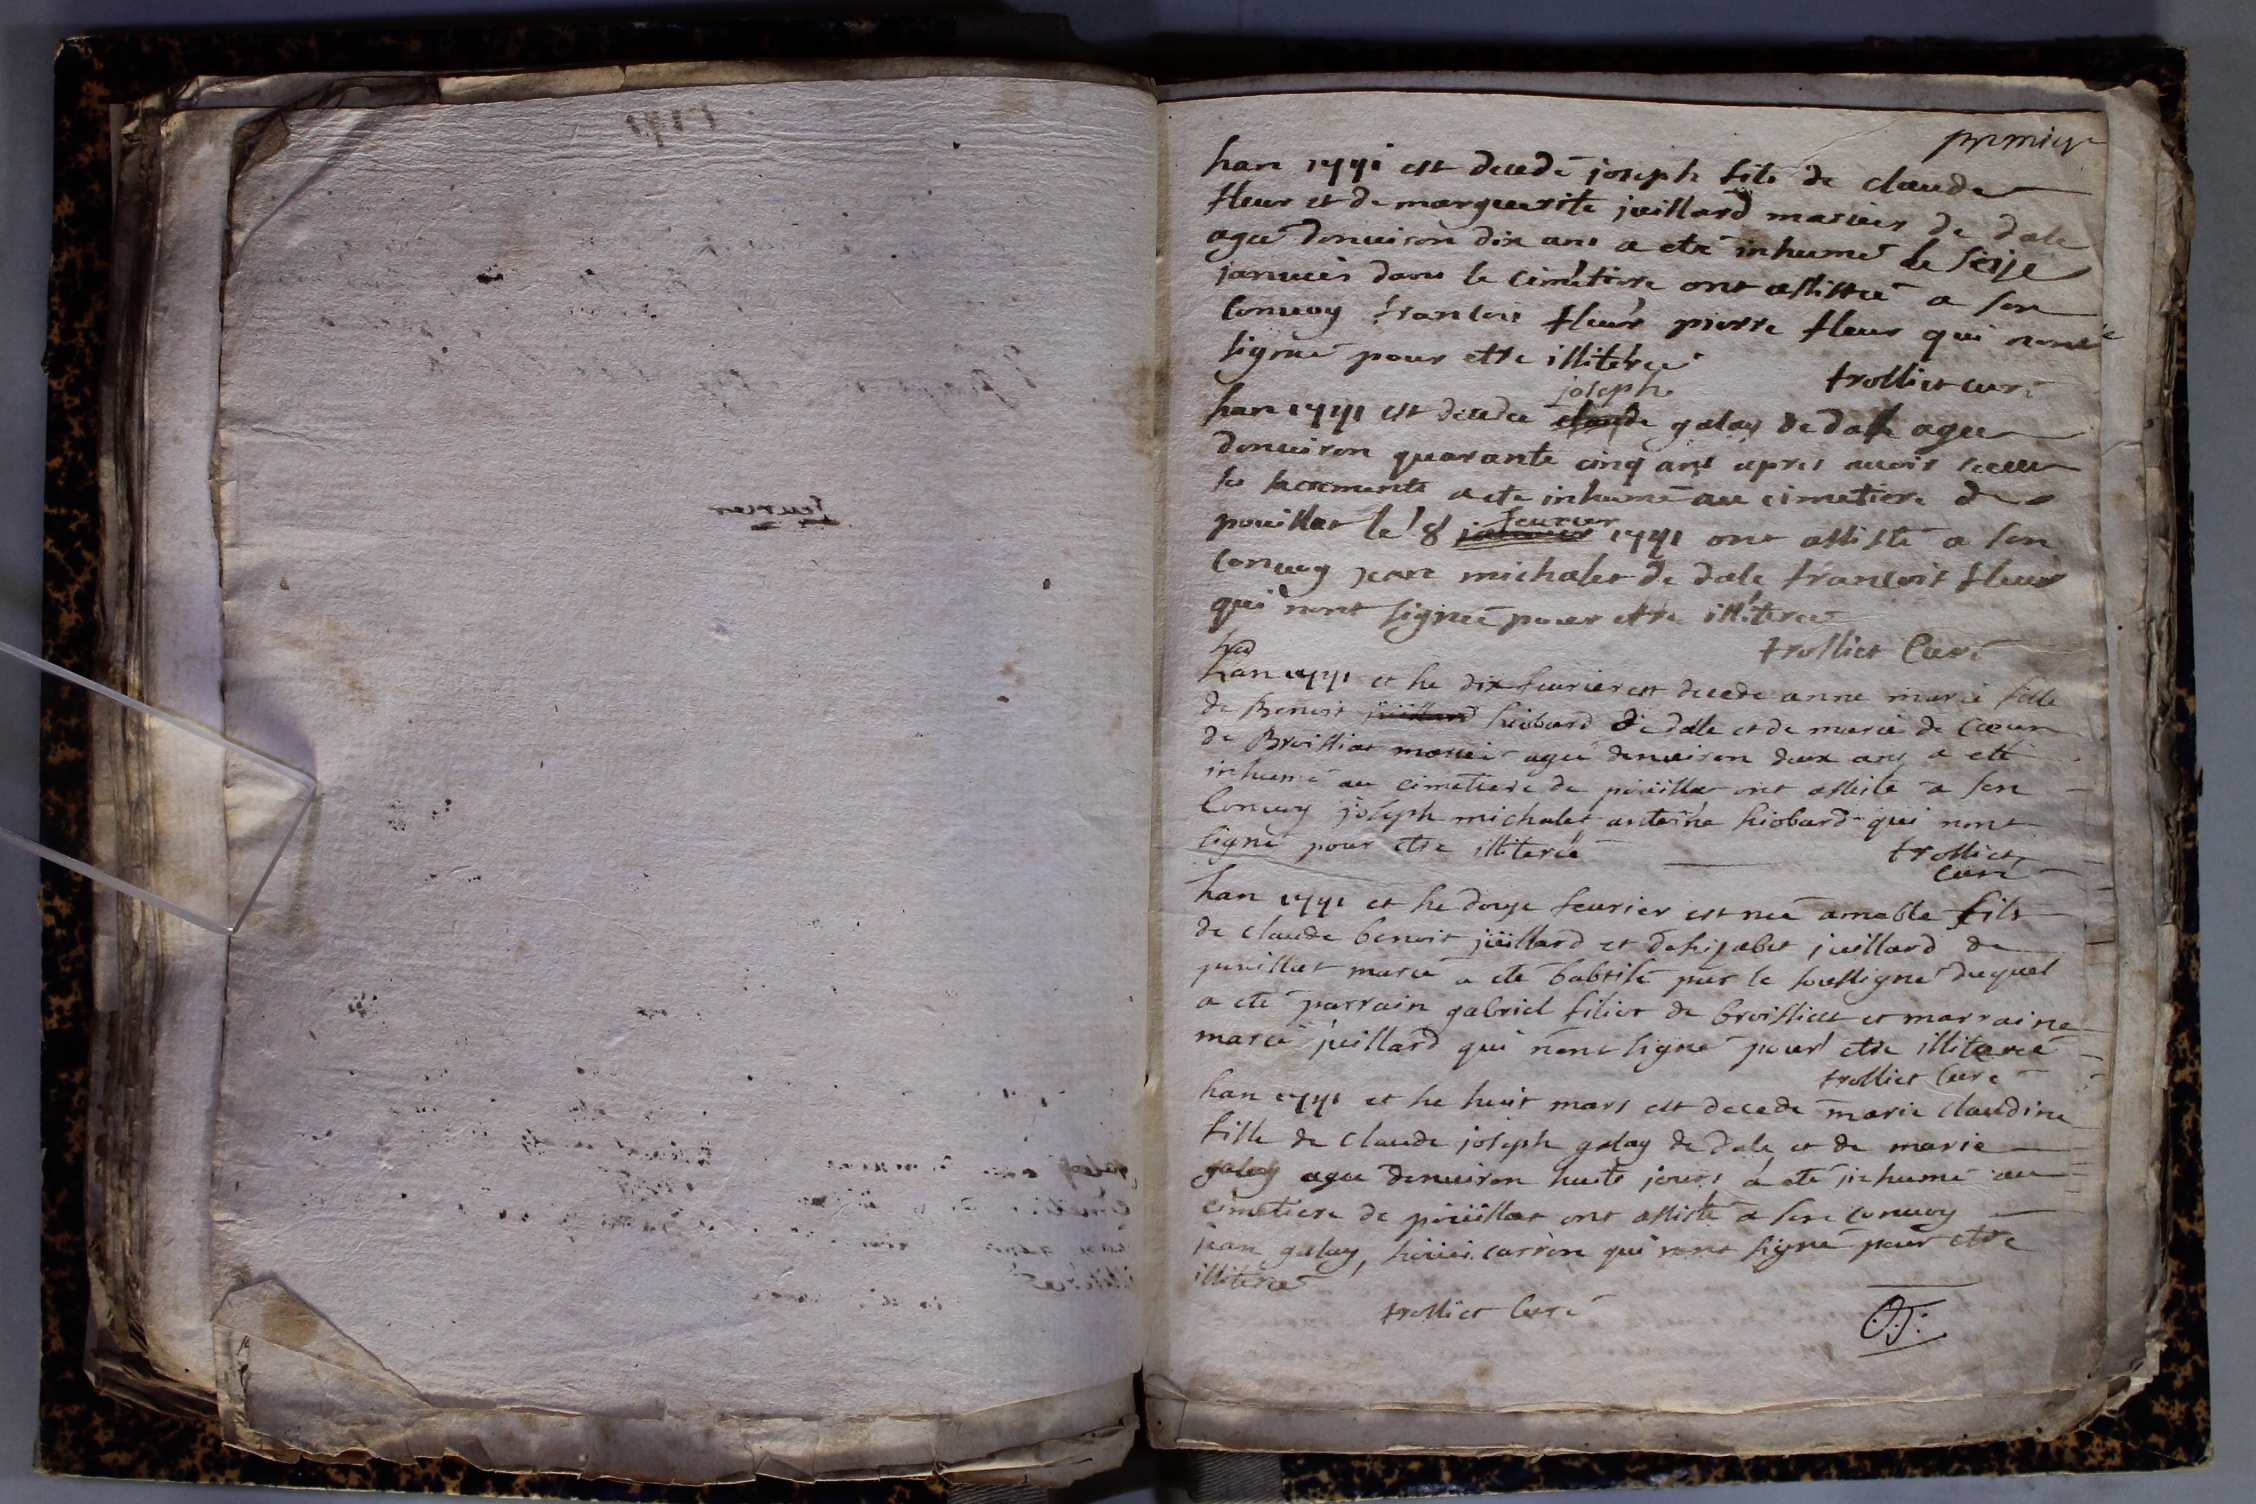 premier
han 1791 est decedé joseph fils de claude
fleur et de marguerite juillard mariés de dale
agee denuiron dix ans a ete inhumé le seije
januier dans le cimetiere ont assistté a son
Conuoy francois fleur pierre fleur qui nont
signé pour etre illiterée
trolliet curé
joseph
han 1791 est decedee claude galay de dale agee
denuiron quarante cinq ans apres auoir receu
les sacrements a ete inhumé au cimetiere de
feurier
pouillat le 8 januier 1791 ont assisté a son
conuoy jean michalet de dale francois fleur
qui nont signée pour etre illiteree
trolliet Curé
han 1791 et le dix feurier est decede anne marie fille
de Benoit juillard hiobard de dale et de marie de Cœur
de Broissiat mariés agee denuiron deux ans a eté
inhumé au cimetiere de pouillat ont assisté a son
Conuoy joseph michalet antoine hiobard qui nont
signé pour etre illiterée
trolliet
Curé
han 1791 et le douze feurier est née amable fils
de claude benoit juillard et delizabet juillard de
pouillat marié a eté babtisé par le soussigné duquel
a eté parrain gabriel filiot de broissiat et marraine
marie juillard qui nont signé pour etre illiterée
trolliet Curé
han 1791 et le huit mars est decede marie claudine
fille de Claude joseph galay de dale et de marie
galay agee denuiron huit jours a eté inhumé au
cimetiere de pouillat ont assisté a son conuoy
jean galay, carron qui nont signé pour etre
illiterée
trolliet Curé